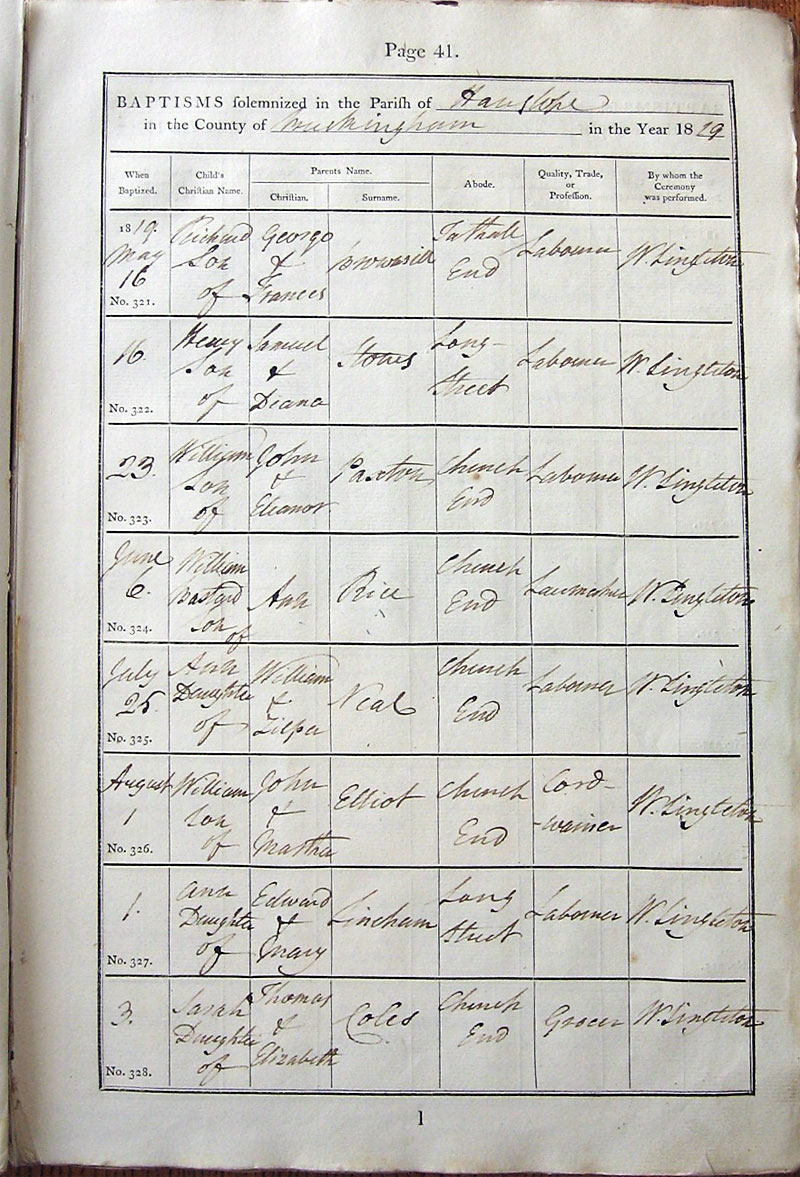 Page 41.
BAPTISMS solemnized in the Parish of Hanslope
in the County of Buckingham in the Year 1819
When Baptized. Child's Christian Name. Parents Name. Christian. Surname. Abode. Quality, Trade, or Profession. By whom the Ceremony was performed.
1819. May 16 No. 321. Richard Son of George & Frances Brownsill Tathall End Labourer W. Singleton
16. No. 322. Henry Son of Samuel & Diana Long Street Labourer W. Singleton
23. No. 323. William Son of John & Eleanor Paxton Church End Labourer W. Singleton
June 6. No. 324. William Bastard Son of Ann Rice Church End Lacemaker W. Singleton
July 25. No. 325. Ann Daughter of William & Zilpa Neal Church End Labourer W. Singleton
August 1 No. 326. William Son of John & Martha Elliot Church End Cord-wainer W. Singleton
1. No. 327. Ann Daughter of Edward & Mary Lincham Long Street Labourer W. Singleton
3. No. 328. Sarah Daughter of Thomas & Elizabeth Coles Church End Grocer W. Singleton
1